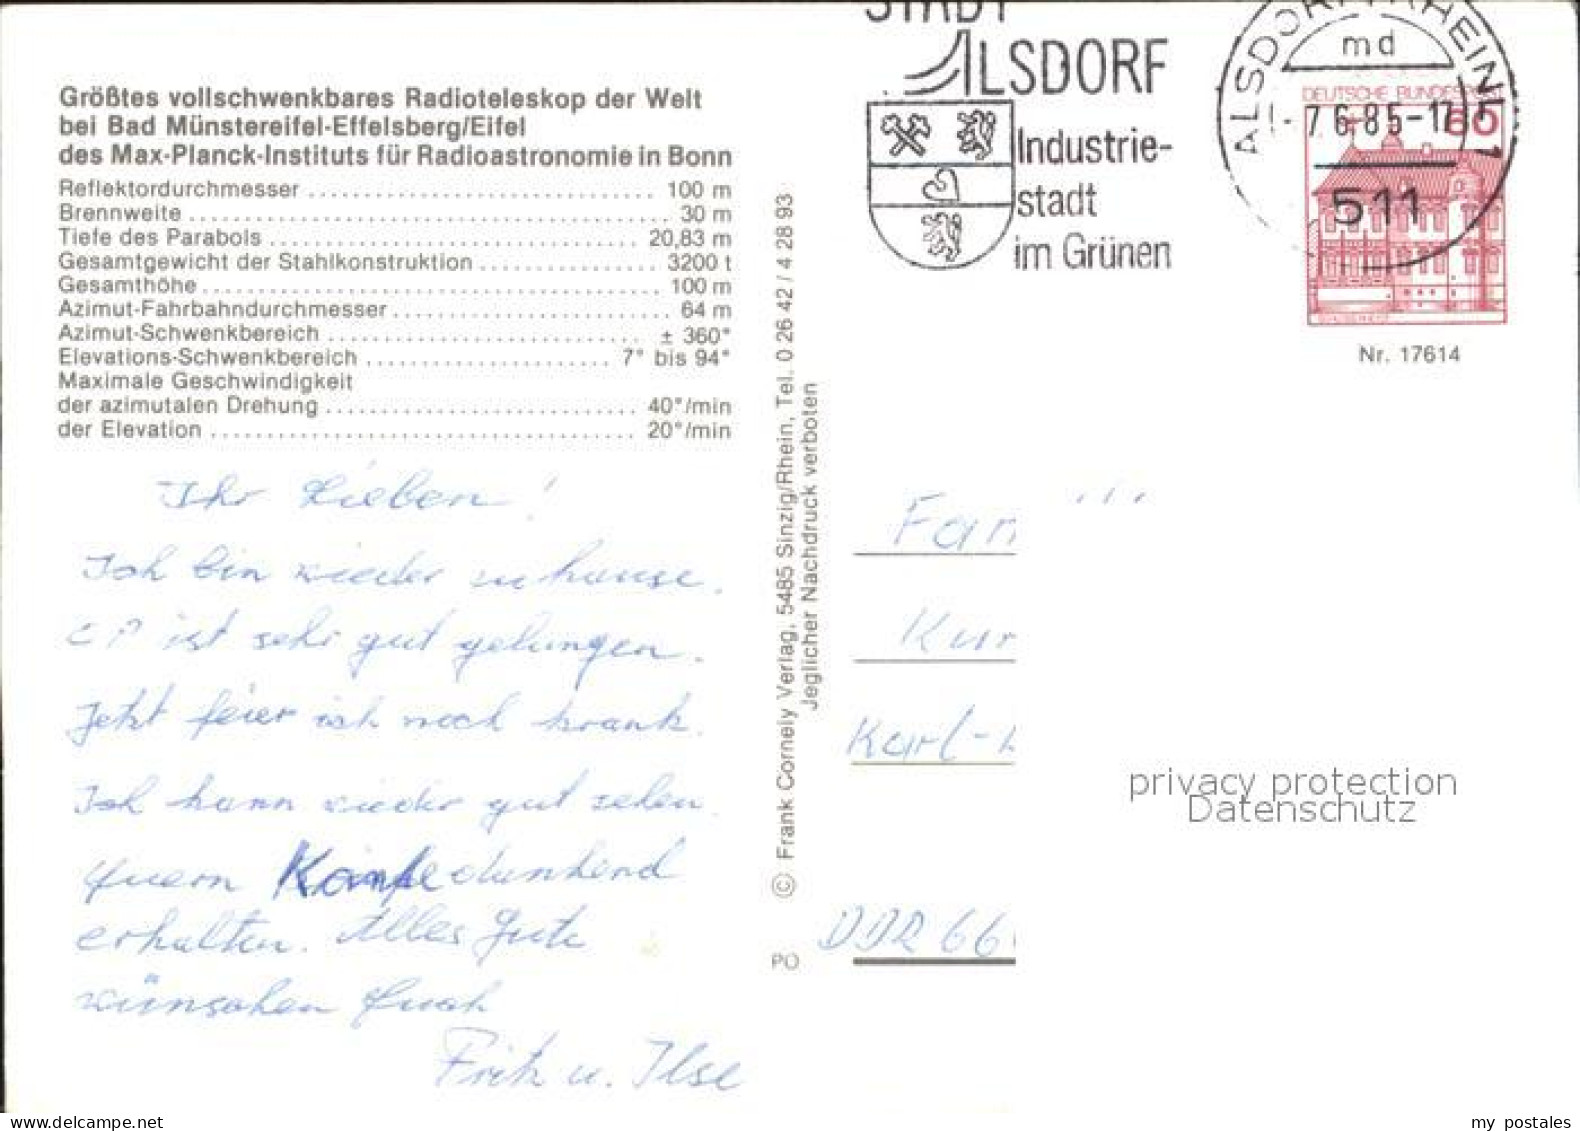 Größtes vollschwenkbares Radioteleskop der Welt
bei Bad Münstereifel-Effelsberg/Eifel
des Max-Planck-Instituts für Radioastronomie in Bonn
Reflektordurchmesser ........ 100 m
Brennweite ........ 30 m
Tiefe des Parabols ........ 20,83 m
Gesamtgewicht der Stahlkonstruktion ........ 3200 t
Gesamthöhe ........ 100 m
Azimut-Fahrbahndurchmesser ........ 64 m
Azimut-Schwenkbereich ........ ± 360°
Elevations-Schwenkbereich ........ 7° bis 94°
Maximale Geschwindigkeit
der azimutalen Drehung ........ 40°/min
der Elevation ........ 20°/min
Ihr Lieben!
Ich bin wieder zuhause.
ist sehr gut gelungen.
Jetzt feier ich noch krank.
Ich kann wieder gut sehen.
Euern dankend
erhalten. Alles Gute
wünschen Euch
Fritz u. Ilse
© Frank Cornely Verlag, 5485 Sinzig/Rhein, Tel. 0 26 42 / 4 28 93
Jeglicher Nachdruck verboten
PO
STADT
ALSDORF
Industrie-
stadt
im Grünen
ALSDORF, RHEINL 1
md
-7.6.85-17
511
DEUTSCHE BUNDESPOST
60
Nr. 17614
Fam
Kur
Karl-
DDR 66
privacy protection
Datenschutz
my postales